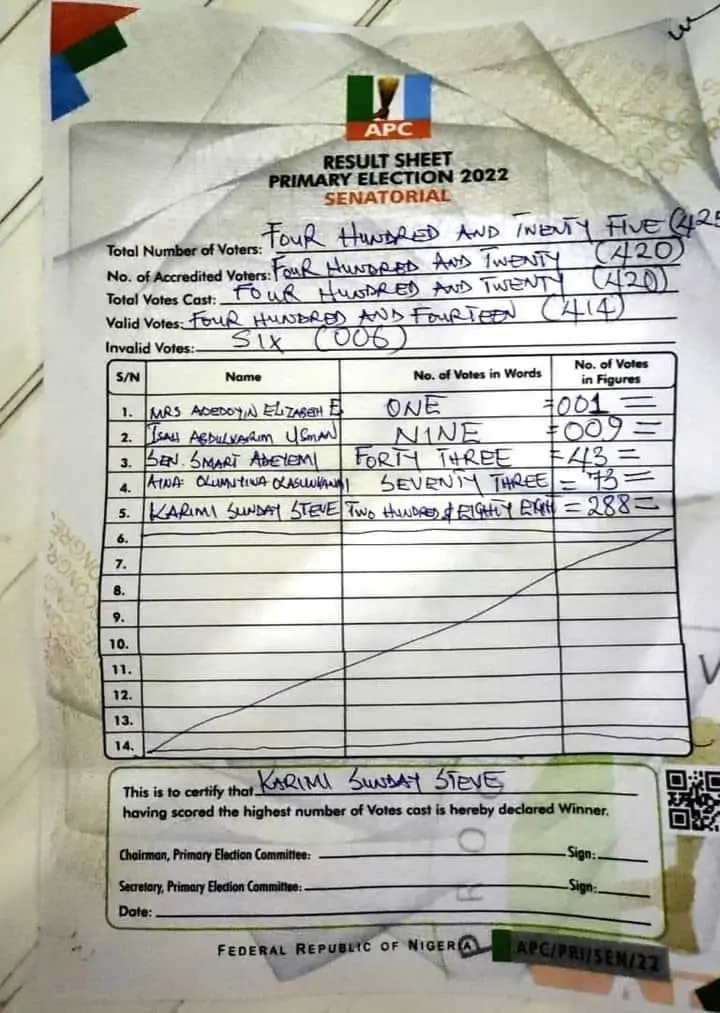 APC
RESULT SHEET
PRIMARY ELECTION 2022
SENATORIAL
Total Number of Voters: FOUR HUNDRED AND TWENTY FIVE (425
No. of Accredited Voters: FOUR HUNDRED AND TWENTY (420)
Total Votes Cast: FOUR HUNDRED AND TWENTY (420)
Valid Votes: FOUR HUNDRED AND FOURTEEN (414)
Invalid Votes: SIX (006)
S/N Name No. of Votes in Words No. of Votes in Figures
1. MRS ADEDOYIN ELIZABETH E ONE =001=
2. ISAH ABDULKARIM USMAN NINE =009=
3. SEN. SMART ADEYEMI FORTY THREE =43=
4. AINA SEVENTY THREE =73=
5. KARIMI SUNDAY STEVE TWO HUNDRED & EIGHTY EIGHT =288=
6.
7.
8.
9.
10.
11.
12.
13.
14.
This is to certify that KARIMI SUNDAY STEVE
having scored the highest number of Votes cast is hereby declared Winner.
Chairman, Primary Election Committee: Sign:
Secretary, Primary Election Committee: Sign:
Date:
FEDERAL REPUBLIC OF NIGERIA
APC/PRI/SEN/22